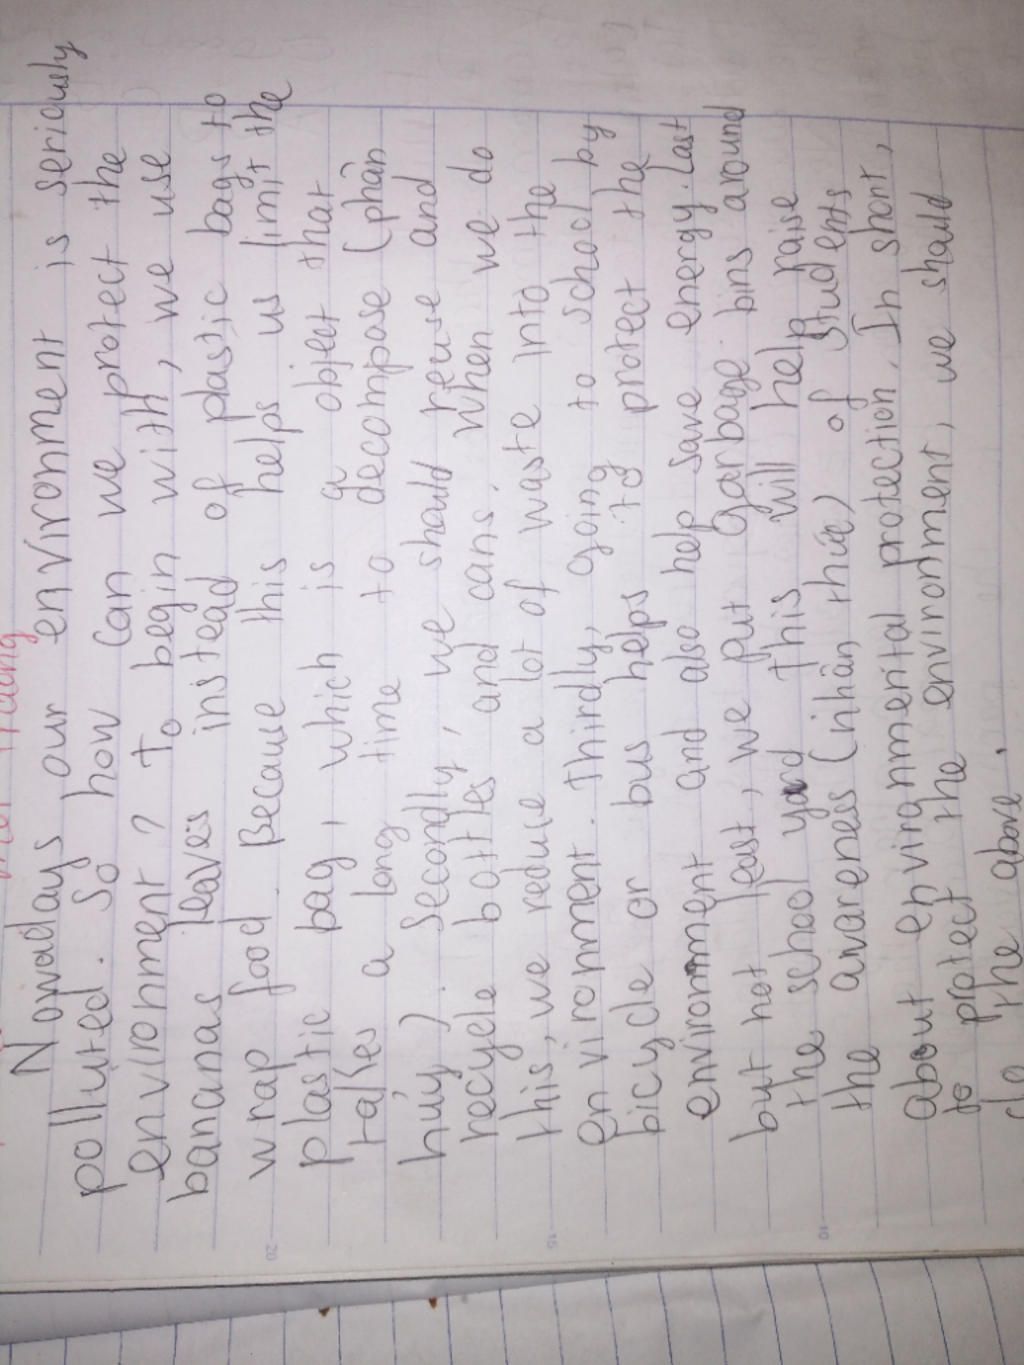 Nowadays our environment is seriously
polluted. So how can we protect the
environment? To begin with, we use
bananas leaves instead of plastic bags to
wrap food. Because this helps us limit the
plastic bag, which is a object that
takes a long time to decompose (phân
hủy). Secondly, we should reuse and
recycle bottles and cans. When we do
this, we reduce a lot of waste into the
environment. Thirdly, going to school by
bicycle or bus helps to protect the
environment and also help save energy. Last
but not least, we put garbage bins around
the school yard This will help raise
the awareness (nhận thức) of students
about environmental protection. In short,
to protect the environment, we should
do the above.
20
15
10